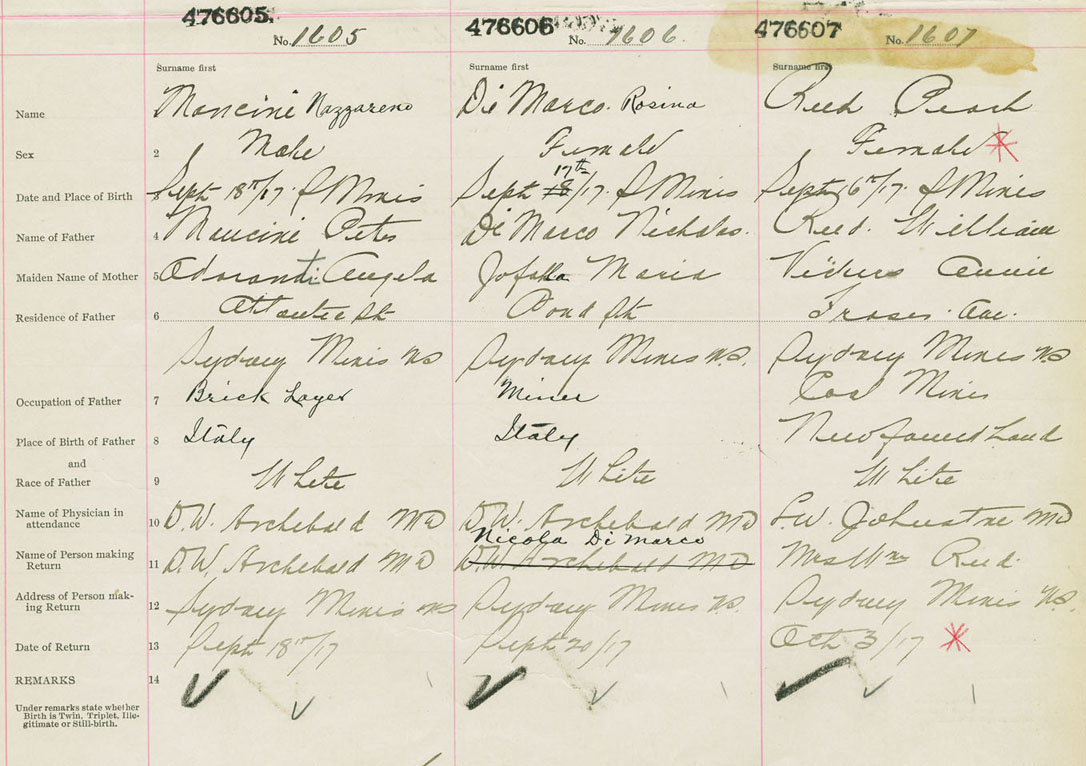 476605. 476606 476607
No. 1605 No. 1606. No. 1607
Surname first Surname first Surname first
Name Mancini Nazzareno Di Marco. Rosina Reed Pearl
Sex 2 Male Female Female *
17th
Date and Place of Birth 3 Sept 18th/17. S Mines Sept 18/17. S Mines Sept 6th/17. S Mines
Name of Father 4 Mancini Peter Di Marco Nicholas. Reed. William
Maiden Name of Mother 5 Adoranti Angela Maria Vickers Annie
Residence of Father 6 Atlantic St Pond St Fraser. Ave.
Sydney Mines NS Sydney Mines NS. Sydney Mines NS
Occupation of Father 7 Brick Layer Miner Coal Miner
Place of Birth of Father 8 Italy Italy Newfoundland
and
Race of Father 9 White White White
Name of Physician in
attendance 10 D.W. Archebald MD D.W. Archebald MD L.W. Johnstone MD
Nicola Di Marco
Name of Person making
Return 11 D.W. Archebald MD D.W. Archebald MD Mrs Wm Reed.
Address of Person mak-
ing Return 12 Sydney Mines NS Sydney Mines NS. Sydney Mines N.S.
Date of Return 13 Sept 18th/17 Sept 20/17 Oct 3/17 *
REMARKS 14
Under remarks state whether
Birth is Twin, Triplet, Ille-
gitimate or Still-birth.